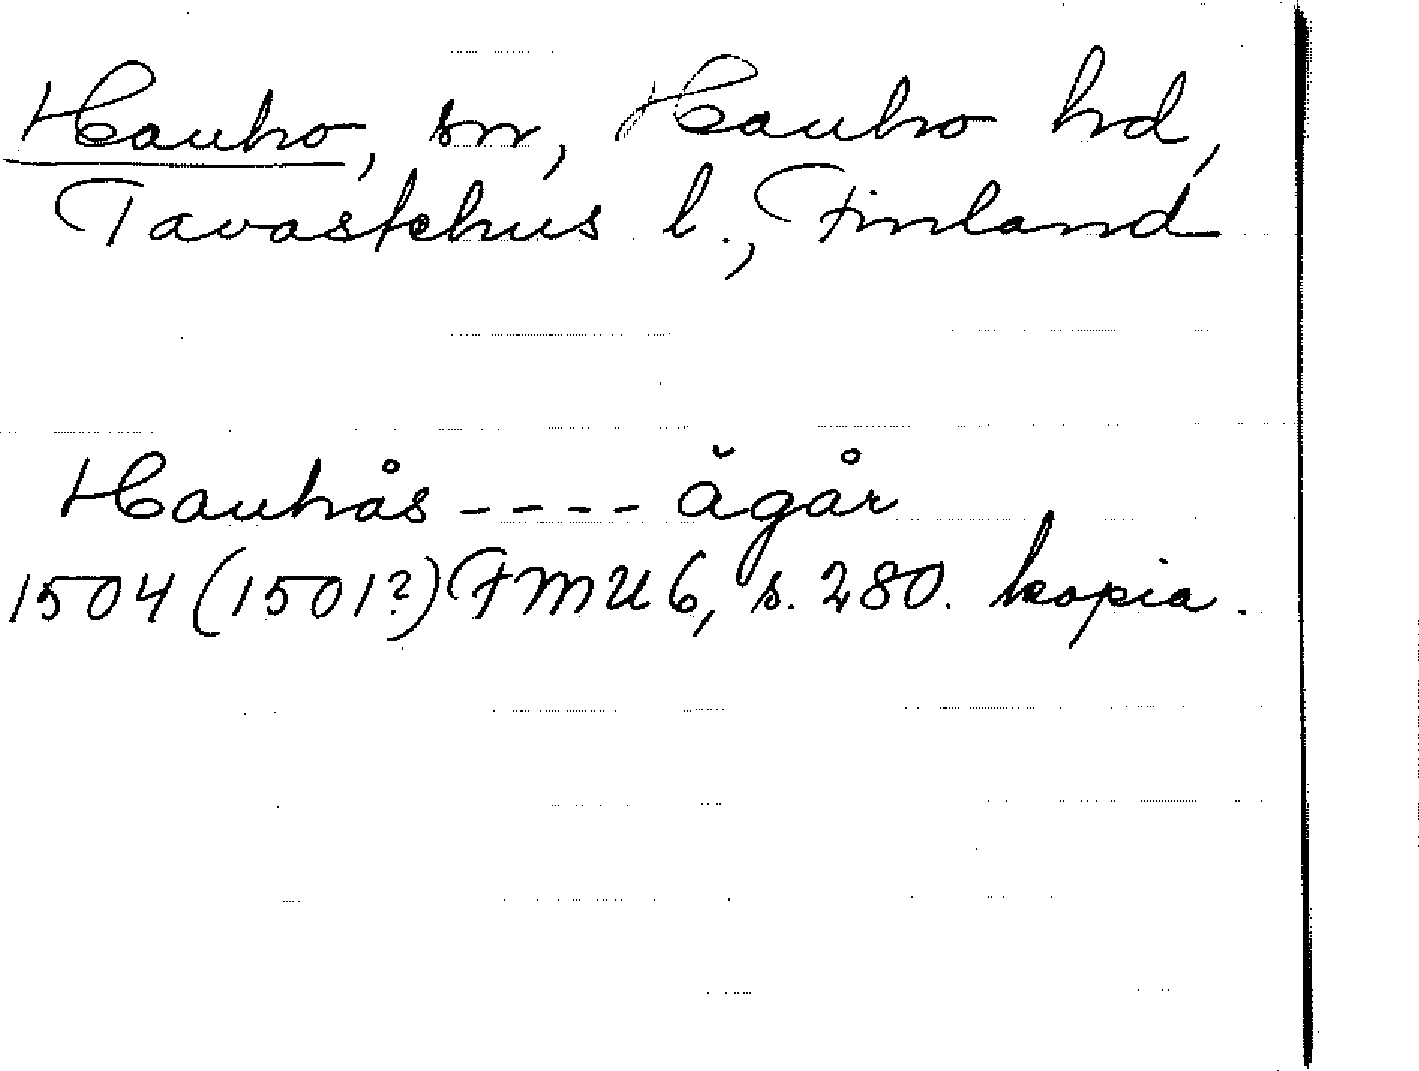 Hauho, sn, Hauho hd,
Tavastehus l., Finland
Hauhås ---- ågår
1504 (1501?) FMU 6, s. 280. kopia.